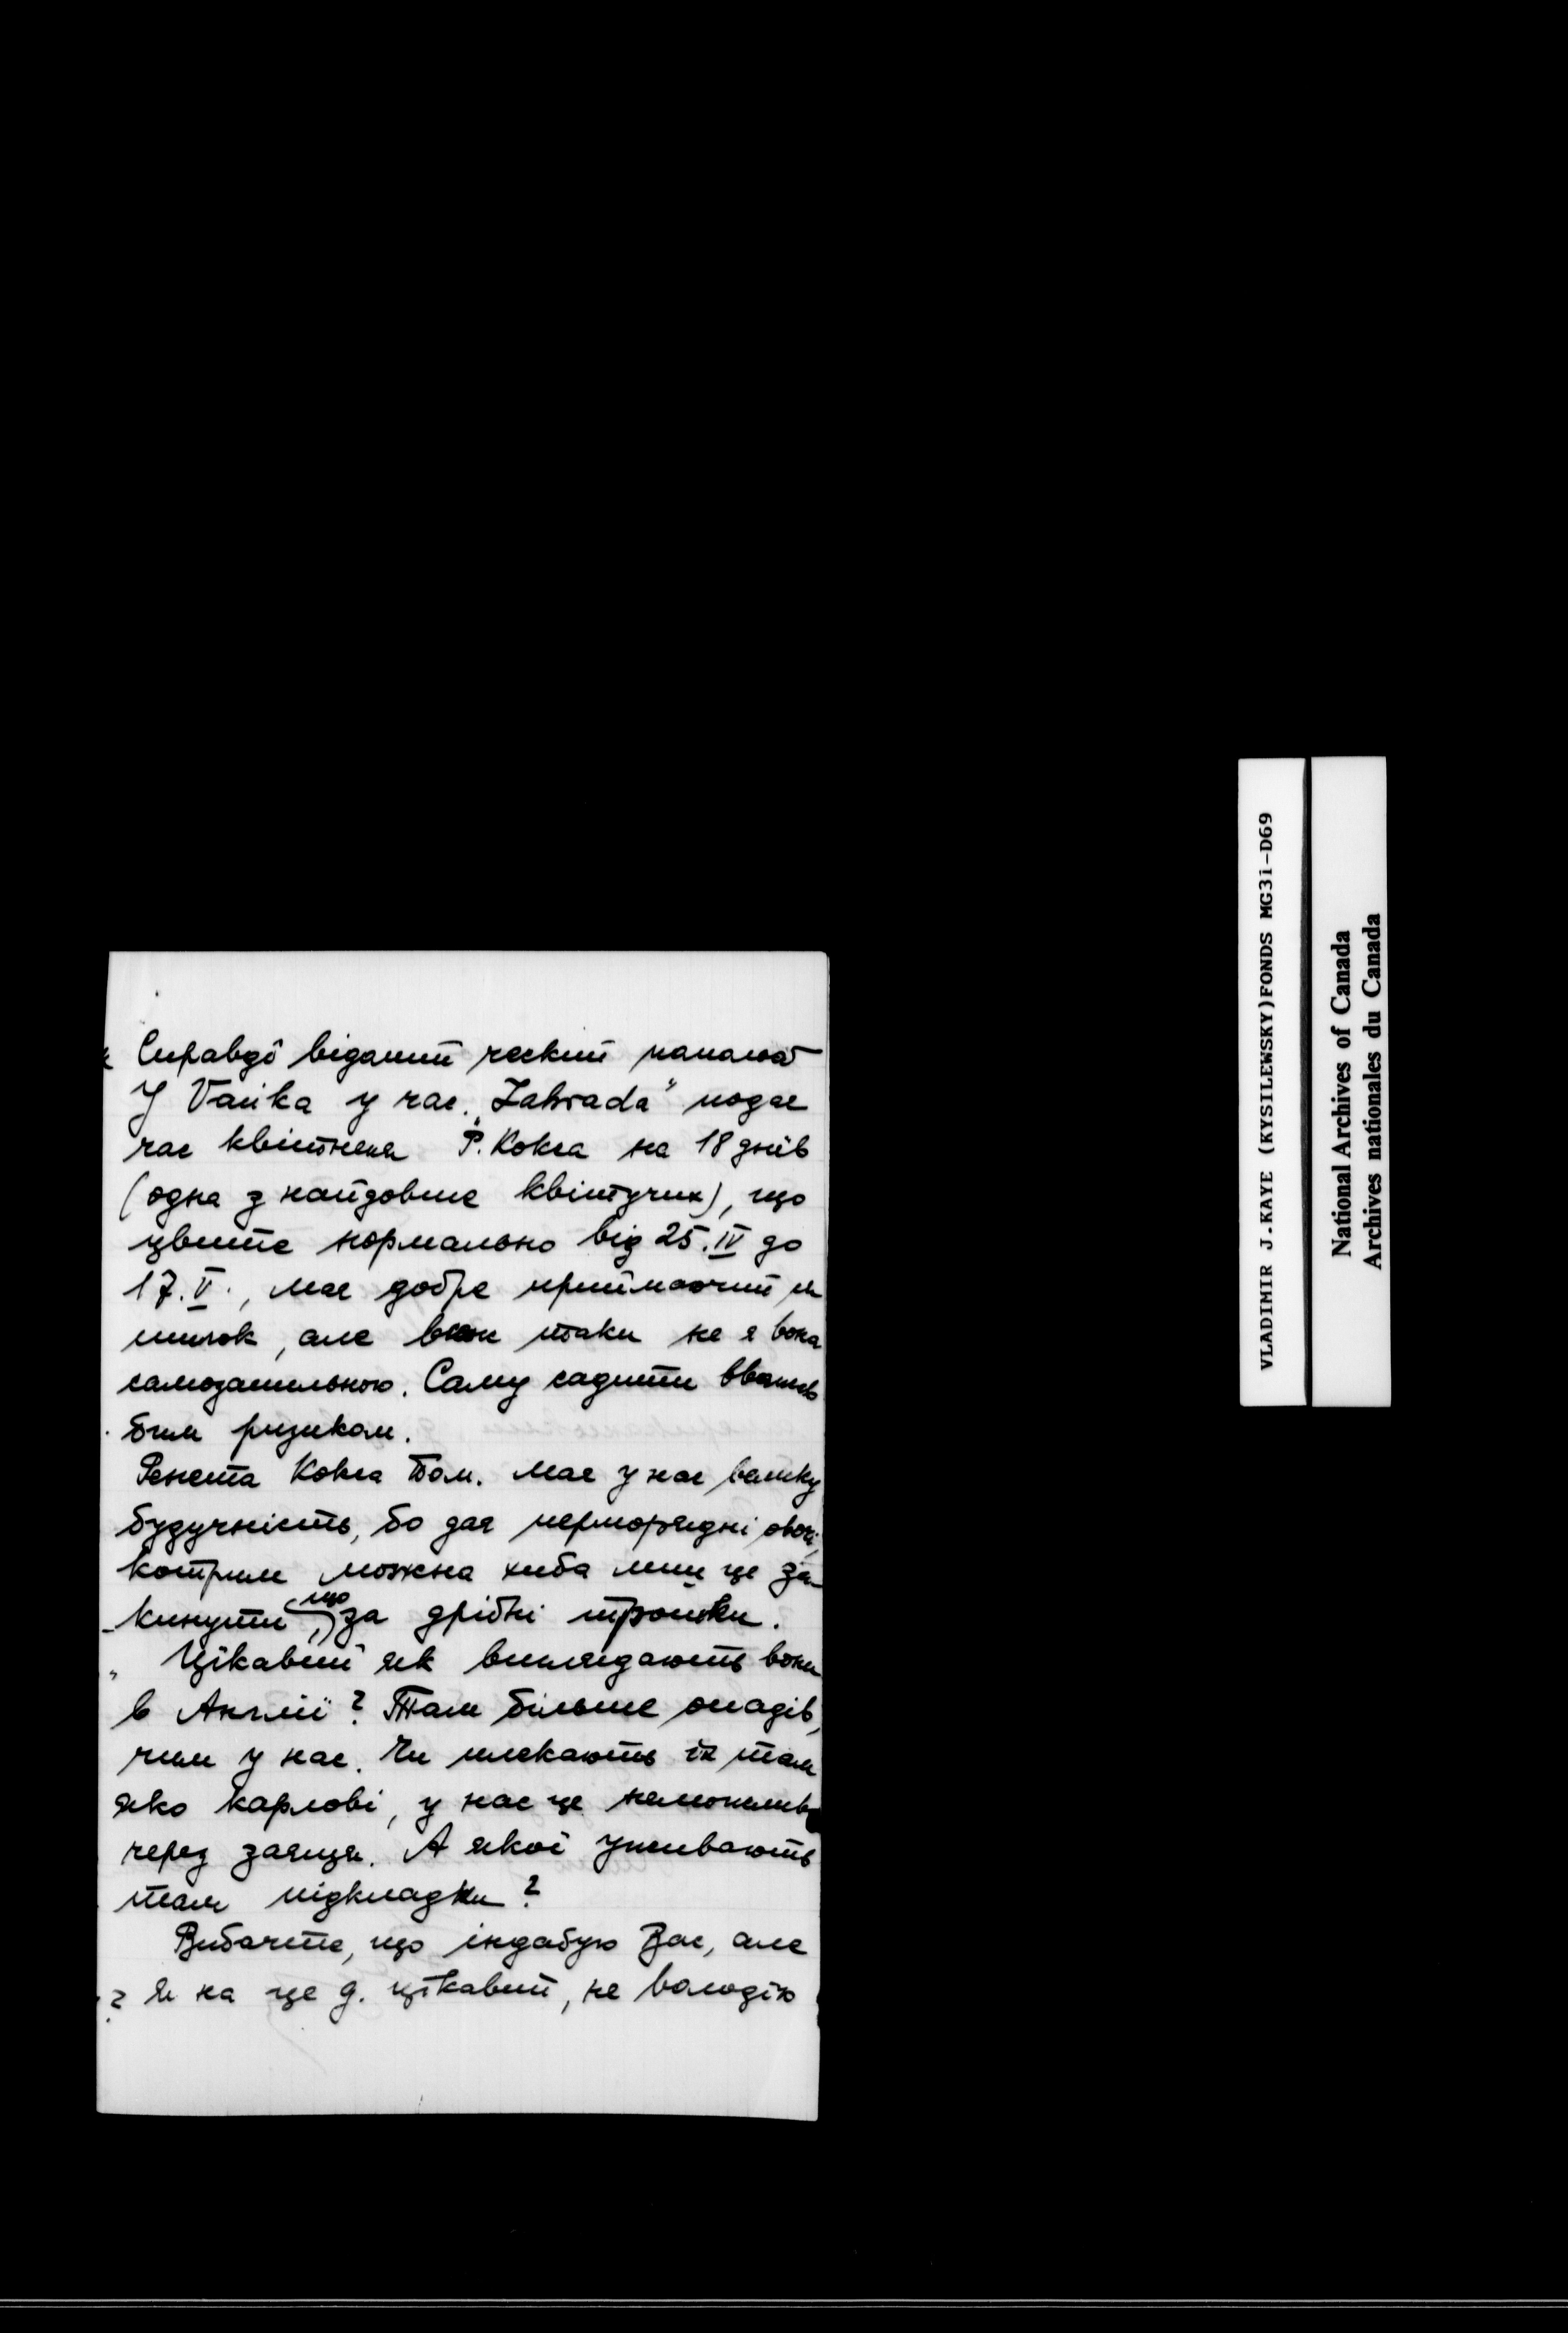 Справді віданий ческий помолог
У Vaníka у час. „Zahrada" подає
час квітненя Р. Кокса на 18 днів
(одна з найдовше квітучих), що
цвите нормально від 25.IV до
17.V., має добре приймаючий
пилок, але таки не є вона
самозапильною. Саму садити
ризиком.
Ренета Кокса Пом. має у нас велику
будучність, бо дає перворядні овочі,
котрим можна хиба лиш це за-
кинути, що за дрібні трошки.
Цікавий як виглядають вони
в Англії? Там більше опадів,
чим у нас. Чи плекають їх там
яко карлові, у нас це неможливо
через заяця. А якої уживають
там підкладки?
Вибачте, що індабую Вас, але
я на це д. цікавий, не володію
VLADIMIR J.KAYE (KYSILEWSKY)FONDS MG31-D69
National Archives of Canada
Archives nationales du Canada